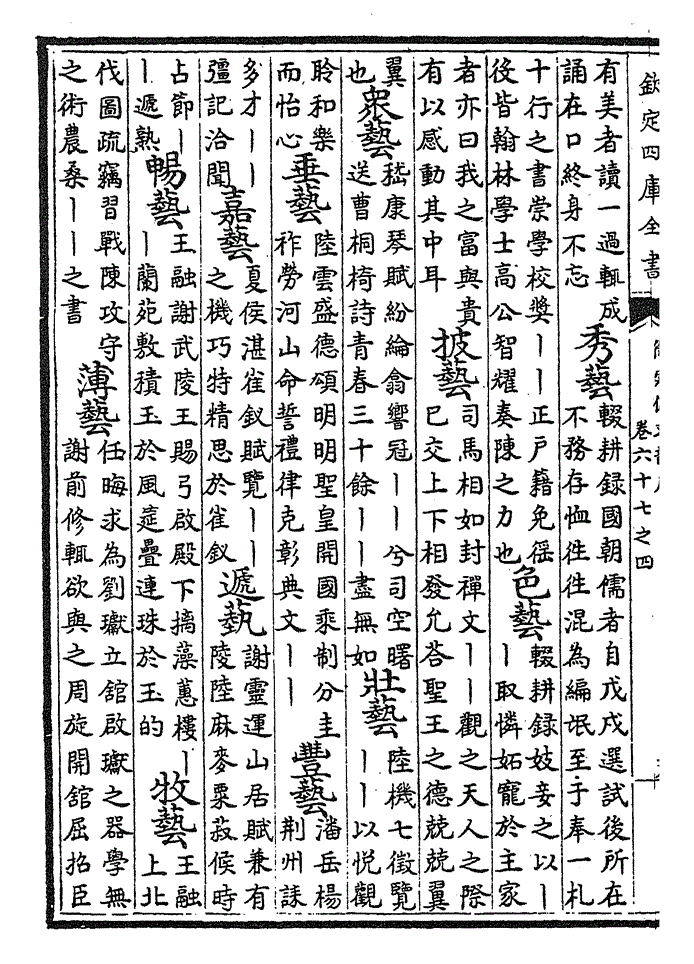 欽定四庫全書
卷六十七之四
有美者讀一過輒成
誦在口終身不忘
秀藝
輟耕録國朝儒者自戊戌選試後所在
不務存恤徃徃混為編氓至于奉一札
十行之書崇學校奬丨丨正戸籍免徭
後皆翰林學士高公智耀奏陳之力也
色藝
輟耕録妓妾之以丨
丨取憐妬寵於主家
者亦曰我之富與貴
有以感動其中耳
披藝
司馬相如封禪文丨丨觀之天人之際
已交上下相發允荅聖王之德兢兢翼
翼
也
衆藝
嵇康琴賦紛綸翕響冠丨丨兮司空曙
送曹桐椅詩青春三十餘丨丨盡無如
壯藝
陸機七徵覽
丨丨以悦觀
聆和樂
而怡心
垂藝
陸雲盛德頌明明聖皇開國乘制分圭
祚勞河山命誓禮律克彰典文丨丨
豐藝
潘岳楊
荆州誄
多才丨丨
彊記洽聞
嘉藝
夏侯湛雀釵賦覽丨丨
之機巧特精思於雀釵
遞藝
謝靈運山居賦兼有
陵陸麻麥粟菽候時
占節丨
丨遞熟
暢藝
王融謝武陵王賜弓啟殿下摛藻蕙樓丨
丨蘭苑敷積玉於風筵疊連珠於玉的
牧藝
王融
上北
伐圖疏竊習戰陳攻守
之術農桑丨丨之書
薄藝
任晦求為劉瓛立舘啟瓛之器學無
謝前修輒欲與之周旋開舘屈招臣